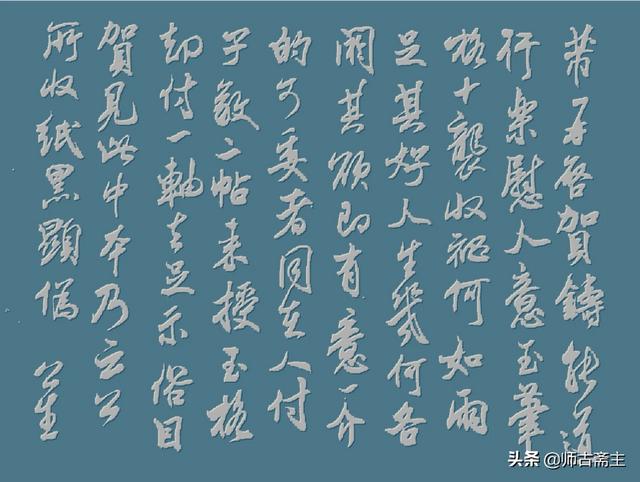 芾再启贺铸能道
行樂慰人意玉筆
格十襲收秘何如兩
足其好人生幾何各
闕其欲即有意一介
的可委者同去人付
子敬二帖来授玉格
却付一軸去足示俗目
賀見此中本乃云公
所收紙黑顯偽 芾
头条 @师古斋主